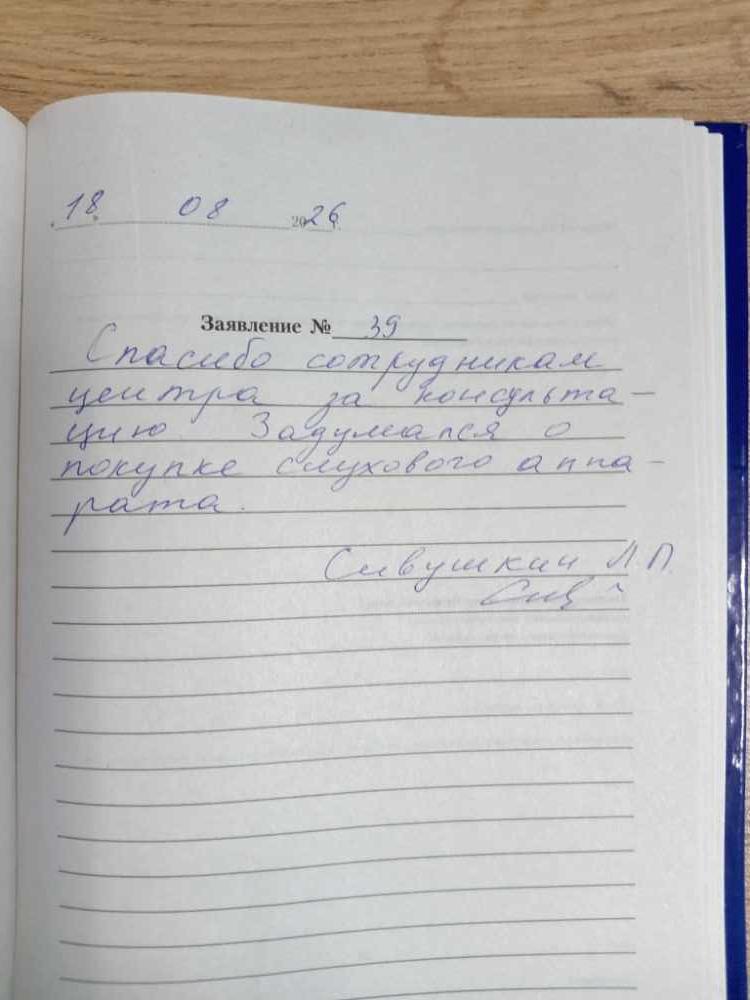 18 08 2026 г.
Заявление № 39
Спасибо сотрудникам
центра за консульта-
цию. Задумался о
покупке слухового аппа-
рата.
Сивушкин Л.П.